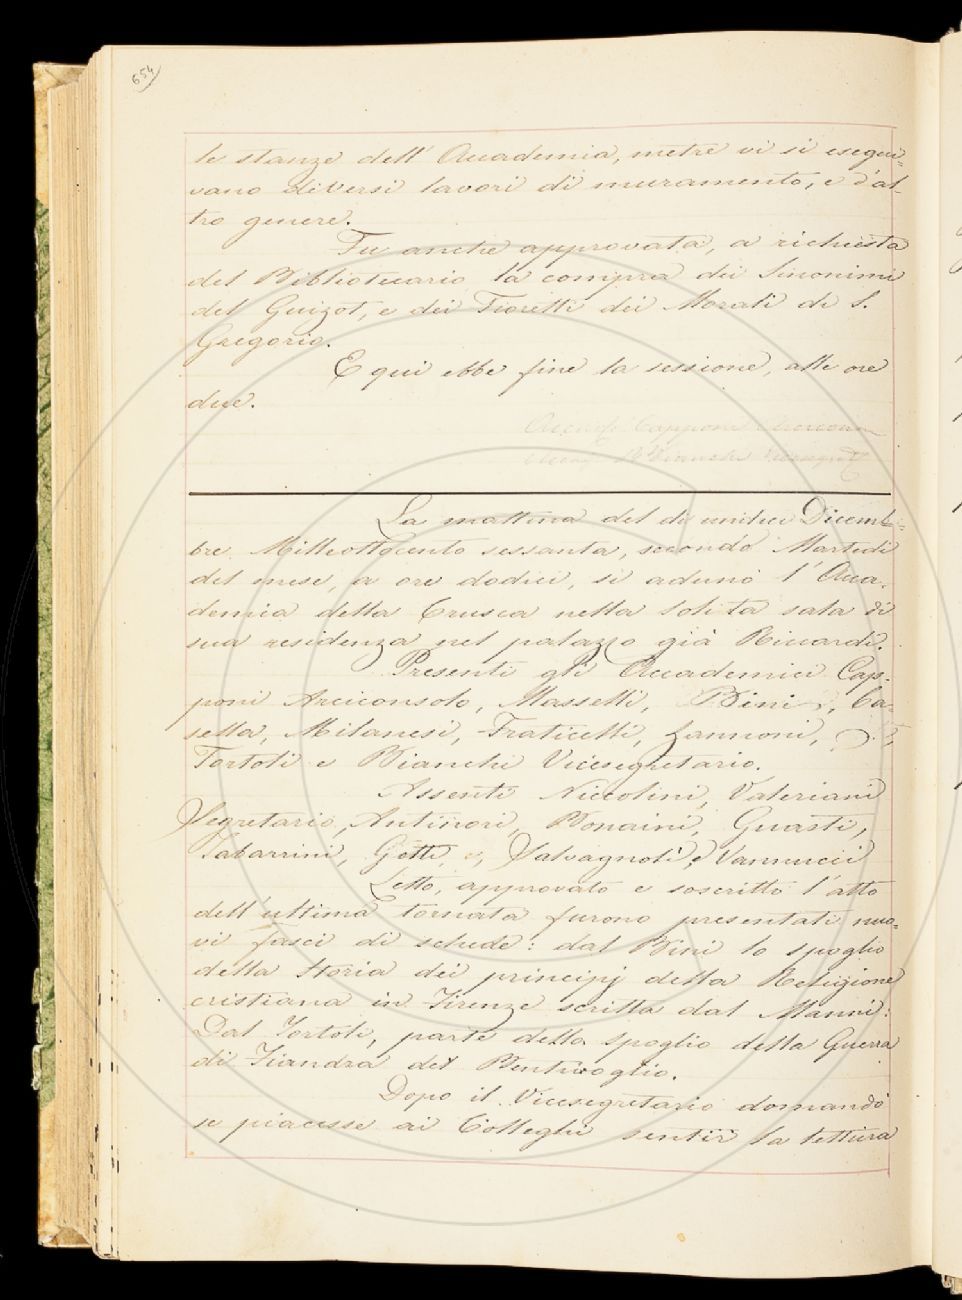 654
le stanze dell' Accademia, metre vi si esegui=
vano diversi lavori di muramento, e d'al-
tro genere.
Fu anche approvata, a richiesta
del Bibliotecario la compra dei Sinonimi
del Guizot, e dei Fioretti dei Morali di S.
Gregorio.
E qui ebbe fine la sessione, alle ore
due.
Capponi Arciconsolo
Bianchi Vicesegret
La mattina del dì undici Dicem=
bre Milleottocento sessanta, secondo Martedì
del mese, a ore dodici, si adunò l' Acca-
demia della Crusca nella solita sala di
sua residenza nel palazzo già Riccardi.
Presenti gli Accademici Cap-
poni Arciconsolo, Masselli, Bini, Ca-
sella, Milanesi, Fraticelli, Zannoni,
Tortoli e Bianchi Vicesegretario.
Assenti Niccolini, Valeriani
Segretario, Antinori, Bonaini, Guasti,
Tabarrini, Gotti, Salvagnoli, e Vannucci
Letto, approvato e soscritto l'atto
dell'ultima tornata furono presentati nuo=
vi fasci di schede: dal Bini lo spoglio
della Storia dei principj della Religione
cristiana in Firenze scritta dal Manni:
Dal Tortoli, parte dello spoglio della Guerra
di Fiandra del Bentivoglio.
Dopo il Vicesegretario domandò
se piacesse ai Colleghi sentir la lettura